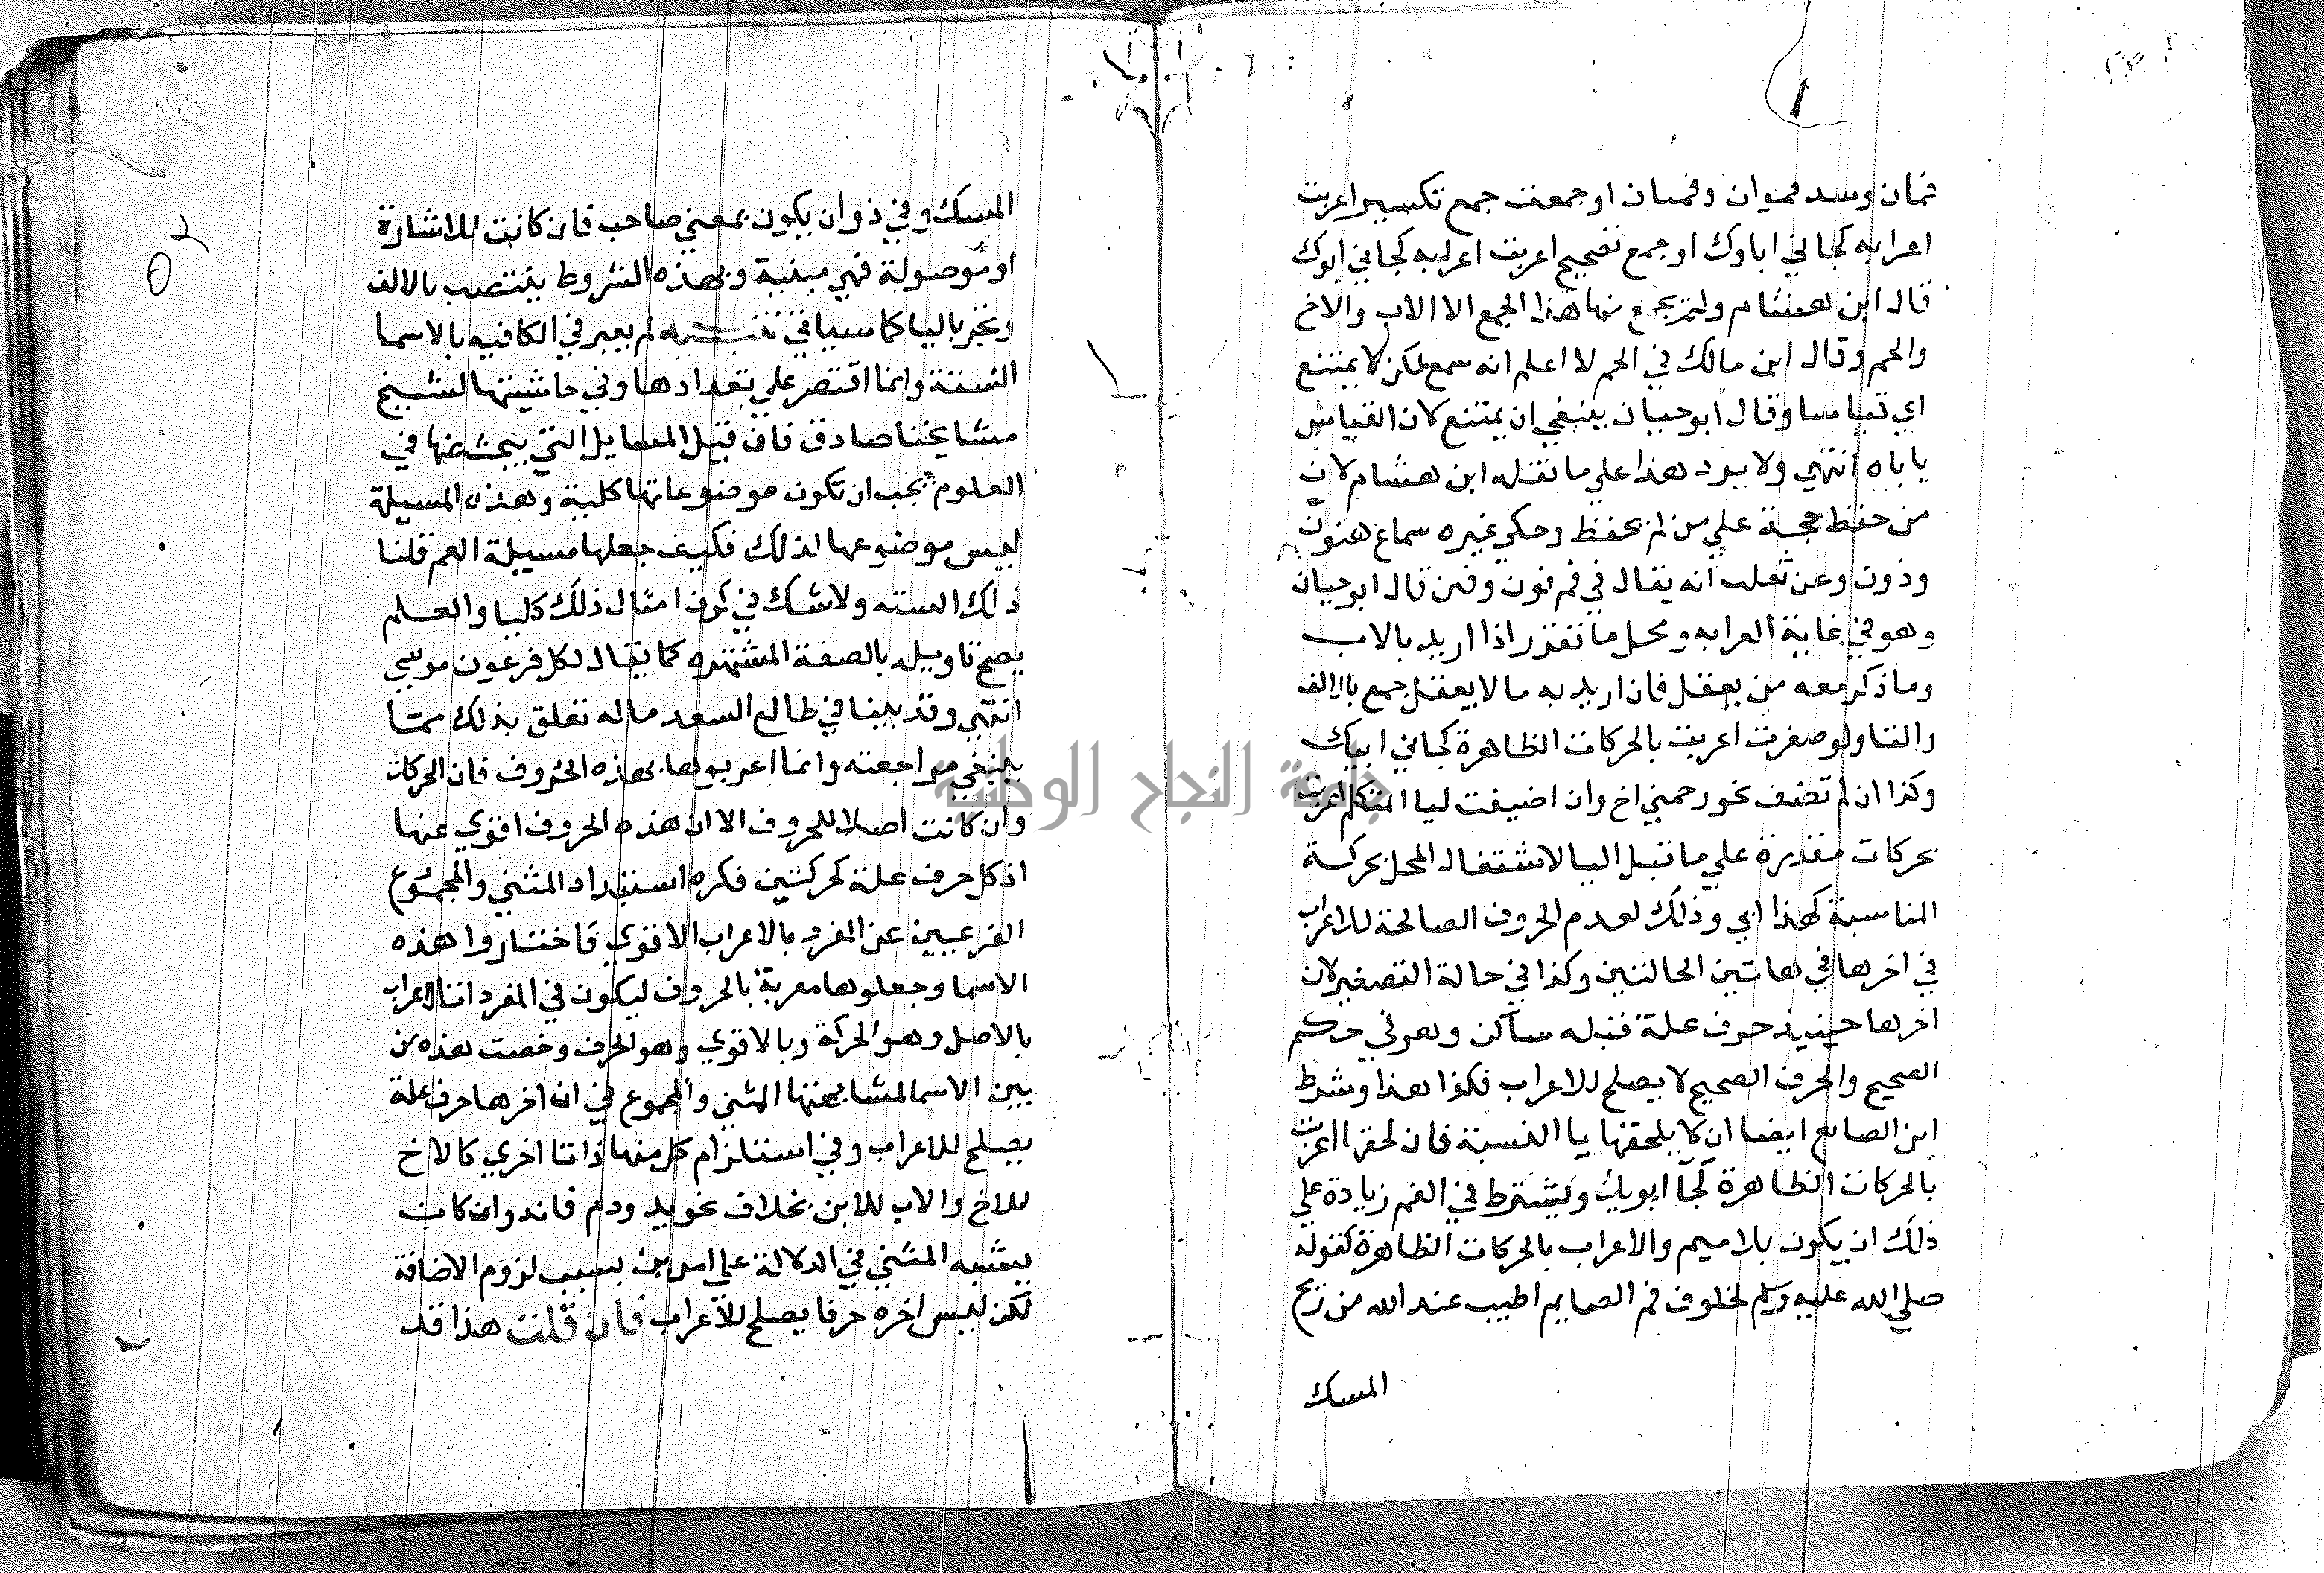 فمان وسد فموان وفميان او جمعت جمع تكسير اعربت
اعرابه كجاني اباوك او جمع تصحيح اعربت اعرابه كجاني ابوك
قال ابن هشام ولم يجمع منها هذا الجمع الا الاب والاخ
والحم وقال ابن مالك في الحم لا اعلم انه سمع لكن لا يمتنع
اي قياسا وقال ابو حيان ينبغي ان يمتنع لان القياس
ياباه انتهي ولا يرد هذا علي ما نقله ابن هشام لان
من حفظ حجة علي من لم يحفظ وحكي غيره سماع هنون
وذون وعن ثعلب انه يقال في فم فون وفين قال ابو حيان
وهو في غاية الغرابه ومحل ما تقرر اذا اريد بالاب
وما ذكر معه من يعقل فان اريد به ما لا يعقل جمع بالالف
والتا ولو صغرت اعربت بالحركات الظاهرة كجاني ابيك
وكذا ان لم تضف نحو رحمني اخ وان اضيفت ليا المتكلم اعربت
بحركات مقدرة علي ما قبل اليا لاشتغال المحل بحركة
المناسبة كهذا ابي وذلك لعدم الحروف الصالحة للاعراب
في اخرها في هاتين الحالتين وكذا في حالة التصغير لان
اخرها حينيذ حرف علة قبله ساكن وهو في حكم
الصحيح والحرف الصحيح لا يصلح للاعراب فكذا هذا وشرط
ابن الصايع ايضا ان لا يلحقها يا النسبة فان لحقها اعربت
بالحركات الظاهرة كجا ابويك ويشترط في الفم زيادة علي
ذلك ان يكون بلا ميم والاعراب بالحركات الظاهرة كقوله
صلي الله عليه وسلم لخلوف فم الصايم اطيب عند الله من ريح
المسك
المسك وفي ذو ان يكون بمعني صاحب فان كانت للاشارة
او موصولة فهي مبنية وبهذه الشروط ينتصب بالالف
ويجر باليا كما سياتي تنبيه لم يعبر في الكافيه بالاسما
الستة وانما اقتصر علي تعدادها وفي حاشيتها لشيخ
مشايخنا صادق فان قيل المسايل التي يبحث عنها في
العلوم يجب ان تكون موضوعاتها كلية وهذه المسيلة
ليس موضوعها لذلك فكيف جعلها مسيلة العم قلنا
ذلك السته ولا شك في كون امثال ذلك كليا والعلم
يصح تاويله بالصفة المشتهره كما يقال لكل فرعون موسي
انتهي وقد بينا في طالع السعد ما له تعلق بذلك مما
ينبغي مراجعته وانما اعربوها بهذه الحروف فان الحركات
وان كانت اصلا للحروف الا ان هذه الحروف اقوي عنها
اذ كل حرف علة كحركتين فكره استبداد المثني والمجموع
الفرعيين عن المفرد بالاعراب الاقوي فاختاروا هذه
الاسما وجعلوها معربة بالحروف ليكون في المفرد اتنا الاعراب
بالاصل وهو الحركة وبالاقوي وهو الحرف وخصت هذه من
بين الاسما لمشابهتها المثني والمجموع في ان اخرها حرف علة
يصلح للاعراب وفي استلزام كل منها ذاتا اخري كالاخ
للاخ والاب للابن بخلاف نحو يد ودم فانه وان كان
يشبه المثني في الدلالة علي امرين بسبب لزوم الاضافة
لكن ليس اخره حرفا يصلح للاعراب فان قلت هذا قد
جامعة النجاح الوطنية